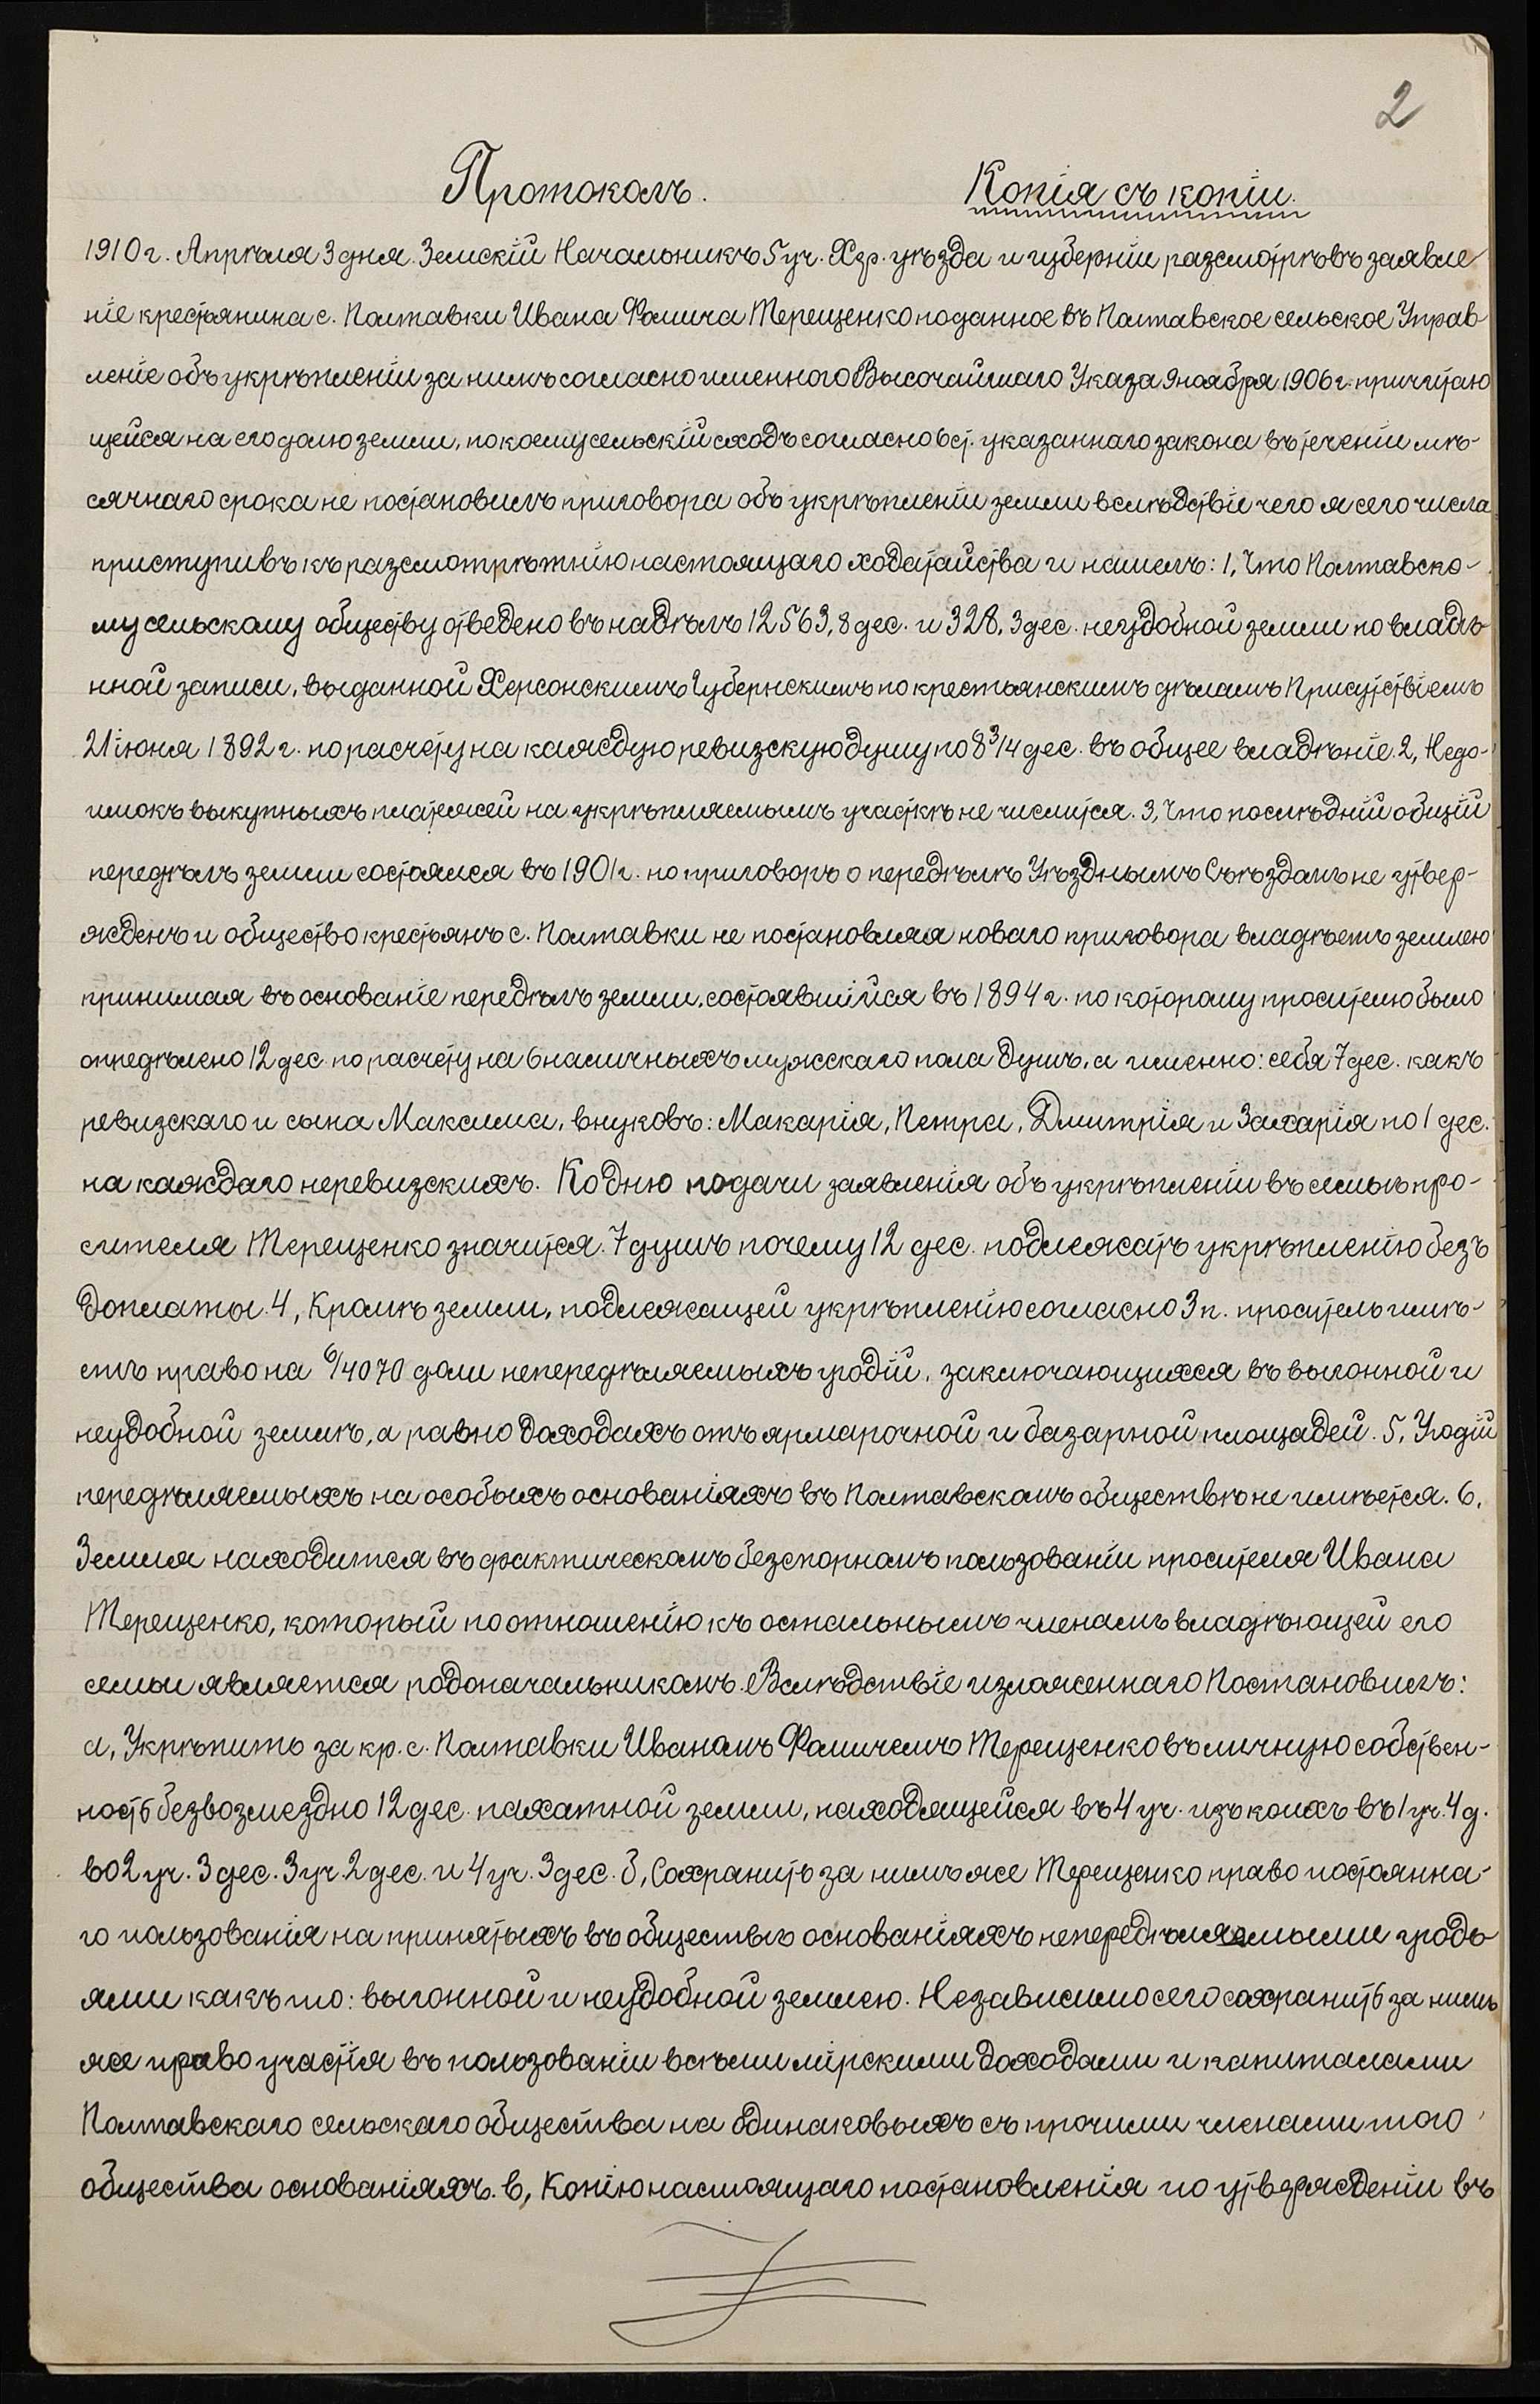 2
Протоколъ. Копія съ копіи.
1910 г. Апрѣля 3 дня. Земскій Начальникъ 5 уч. Хер. уѣзда и губерніи разсмотрѣвъ заявле
ніе крестьянина с. Полтавки Ивана Фомича Терещенко поданное въ Полтавское сельское Управ
леніе объ укрѣпленіи за нимъ согласно именного Высочайшаго Указа 9 ноября 1906 г. причитаю
щейся на его долю земли, по коему сельскій сходъ согласно 6 ст. указаннаго закона въ теченіи мѣ-
сячнаго срока не постановилъ приговора объ укрѣпленіи земли вслѣдствіе чего я сего числа
приступивъ къ разсмотрѣтнію настоящаго ходатайства и нашелъ: 1, Что Полтавско-
му сельскому обществу отведено въ надѣлъ 12563,8 дес. и 328,3 дес. неудобной земли по владѣ
нной записи, выданной Херсонскимъ Губернскимъ по крестьянскимъ дѣламъ Присутствіемъ
21 іюня 1892 г. по расчету на каждую ревизскую душу по 8 3/4 дес. въ общее владѣніе. 2, Недо-
имокъ выкупныхъ платежей на укрѣпляемымъ участкѣ не числится. 3, Что послѣдній общій
передѣлъ земли состоялся въ 1901 г. но приговоръ о передѣлѣ Уѣзднымъ Съѣздомъ не утвер-
жденъ и общество крестьянъ с. Полтавки не постановляя новаго приговора владѣетъ землею
принимая въ основаніе передѣлъ земли, состоявшійся въ 1894 г. по которому просителю было
опредѣлено 12 дес. по расчету на 6 наличныхъ мужскаго пола душъ, а именно: себя 7 дес. какъ
ревизскаго и сына Максима, внуковъ: Макарія, Петра, Дмитрія и Захарія по 1 дес.
на каждаго неревизскихъ. Ко дню подачи заявленія объ укрѣпленіи въ семьѣ про-
сителя Терещенко значится 7 душъ почему 12 дес. подлежатъ укрѣпленію безъ
доплаты. 4, Кромѣ земли, подлежащей укрѣпленію согласно 3 п. проситель имѣ-
етъ право на 6/4070 доли непередѣляемыхъ угодій, заключающихся въ выгонной и
неудобной землѣ, а равно доходахъ отъ ярмарочной и базарной площадей. 5, Угодій
передѣляемыхъ на особыхъ основаніяхъ въ Полтавскомъ обществѣ не имѣется. 6,
Земля находится въ фактическомъ безспорномъ пользованіи просителя Ивана
Терещенко, который по отношенію къ остальнымъ членамъ владѣющей его
семьи является родоначальникомъ. Вслѣдствіе изложеннаго Постановилъ:
а, Укрѣпить за кр. с. Полтавки Иваномъ Фомичемъ Терещенко въ личную собствен-
ность безвозмездно 12 дес. пахатной земли, находящейся въ 4 уч. изъ коихъ въ 1 уч. 4 д.
во 2 уч. 3 дес. 3 уч. 2 дес. и 4 уч. 3 дес. б, Сохранить за нимъ же Терещенко право постоянна-
го пользованія на принятыхъ въ обществѣ основаніяхъ непередѣляемыми угодь
ями какъ то: выгонной и неудобной землею. Независимо сего сохранить за нимъ
же право участія въ пользованіи всѣми мірскими доходами и капиталами
Полтавскаго сельскаго общества на одинаковыхъ съ прочими членами того
общества основаніяхъ. в, Копію настоящаго постановленія по утвержденіи въ